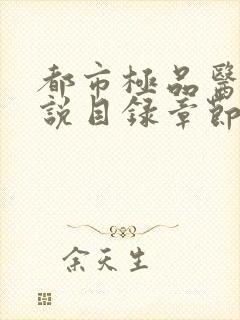 都市極品醫
說目録章節
余天生